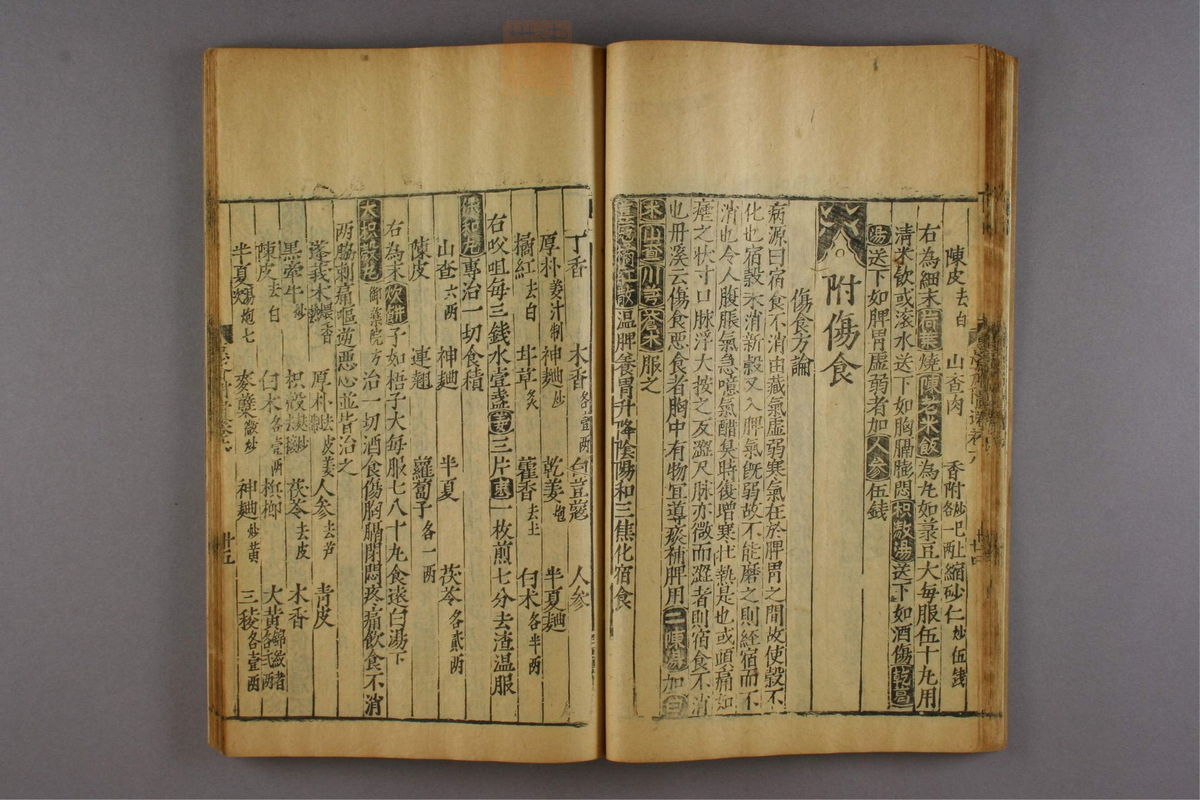 陳皮去白　山查肉　香附炒各一兩　縮砂仁炒伍錢
右為細末荷葉燒陳名米飯為丸如菉豆大每服伍十丸用
清米飲或滾水送下如胸膈膨悶枳殼湯送下如酒傷乾葛
湯送下如脾胃虛弱者加人參伍錢
附傷食
傷食方論
病源曰宿食不消由藏氣虛弱寒氣在於脾胃之間故使穀不
化也宿穀未消新穀又入脾氣既弱故不能磨之則經宿而不
消也令人腹脹氣急噫氣醋臭時復增寒壯熱是也或頭痛如
瘧之狀寸口脉浮大按之反澀尺脉亦微而澀者則宿食不消
也丹溪云傷食惡食者胸中有物宜導痰補脾用二陳湯加白
朮山查川芎蒼朮服之
橘紅散温脾養胃升降陰陽和三焦化宿食
丁香　木香各壹兩　白豆蔻　人參
厚朴姜汁制　神麯炒　乾姜炮　半夏麯
橘紅去白　甘草炙　藿香去土　白朮各半兩
右㕮咀每三錢水壹盞姜三片棗一枚煎七分去渣温服
保和丸專治一切食積
山查六兩　神麯　半夏　茯苓各貳兩
陳皮　連翹　蘿蔔子各一兩
右為末炊餅子如梧子大每服七八十丸食遠白湯下
大枳殼丸御藥院方治一切酒食傷胸膈閉悶疼痛飲食不消
兩脇刺痛嘔逆惡心並皆治之
蓬莪朮煨香　厚朴去皮姜製　人參去芦　青皮
黑牽牛炒　枳殼麩炒　茯苓去皮　木香
陳皮去白　白朮各壹兩　檳榔　大黃錦紋者各弍兩
半夏湯炮七次　麥蘖微炒　神麯炒黃　三稜各壹兩
廿五